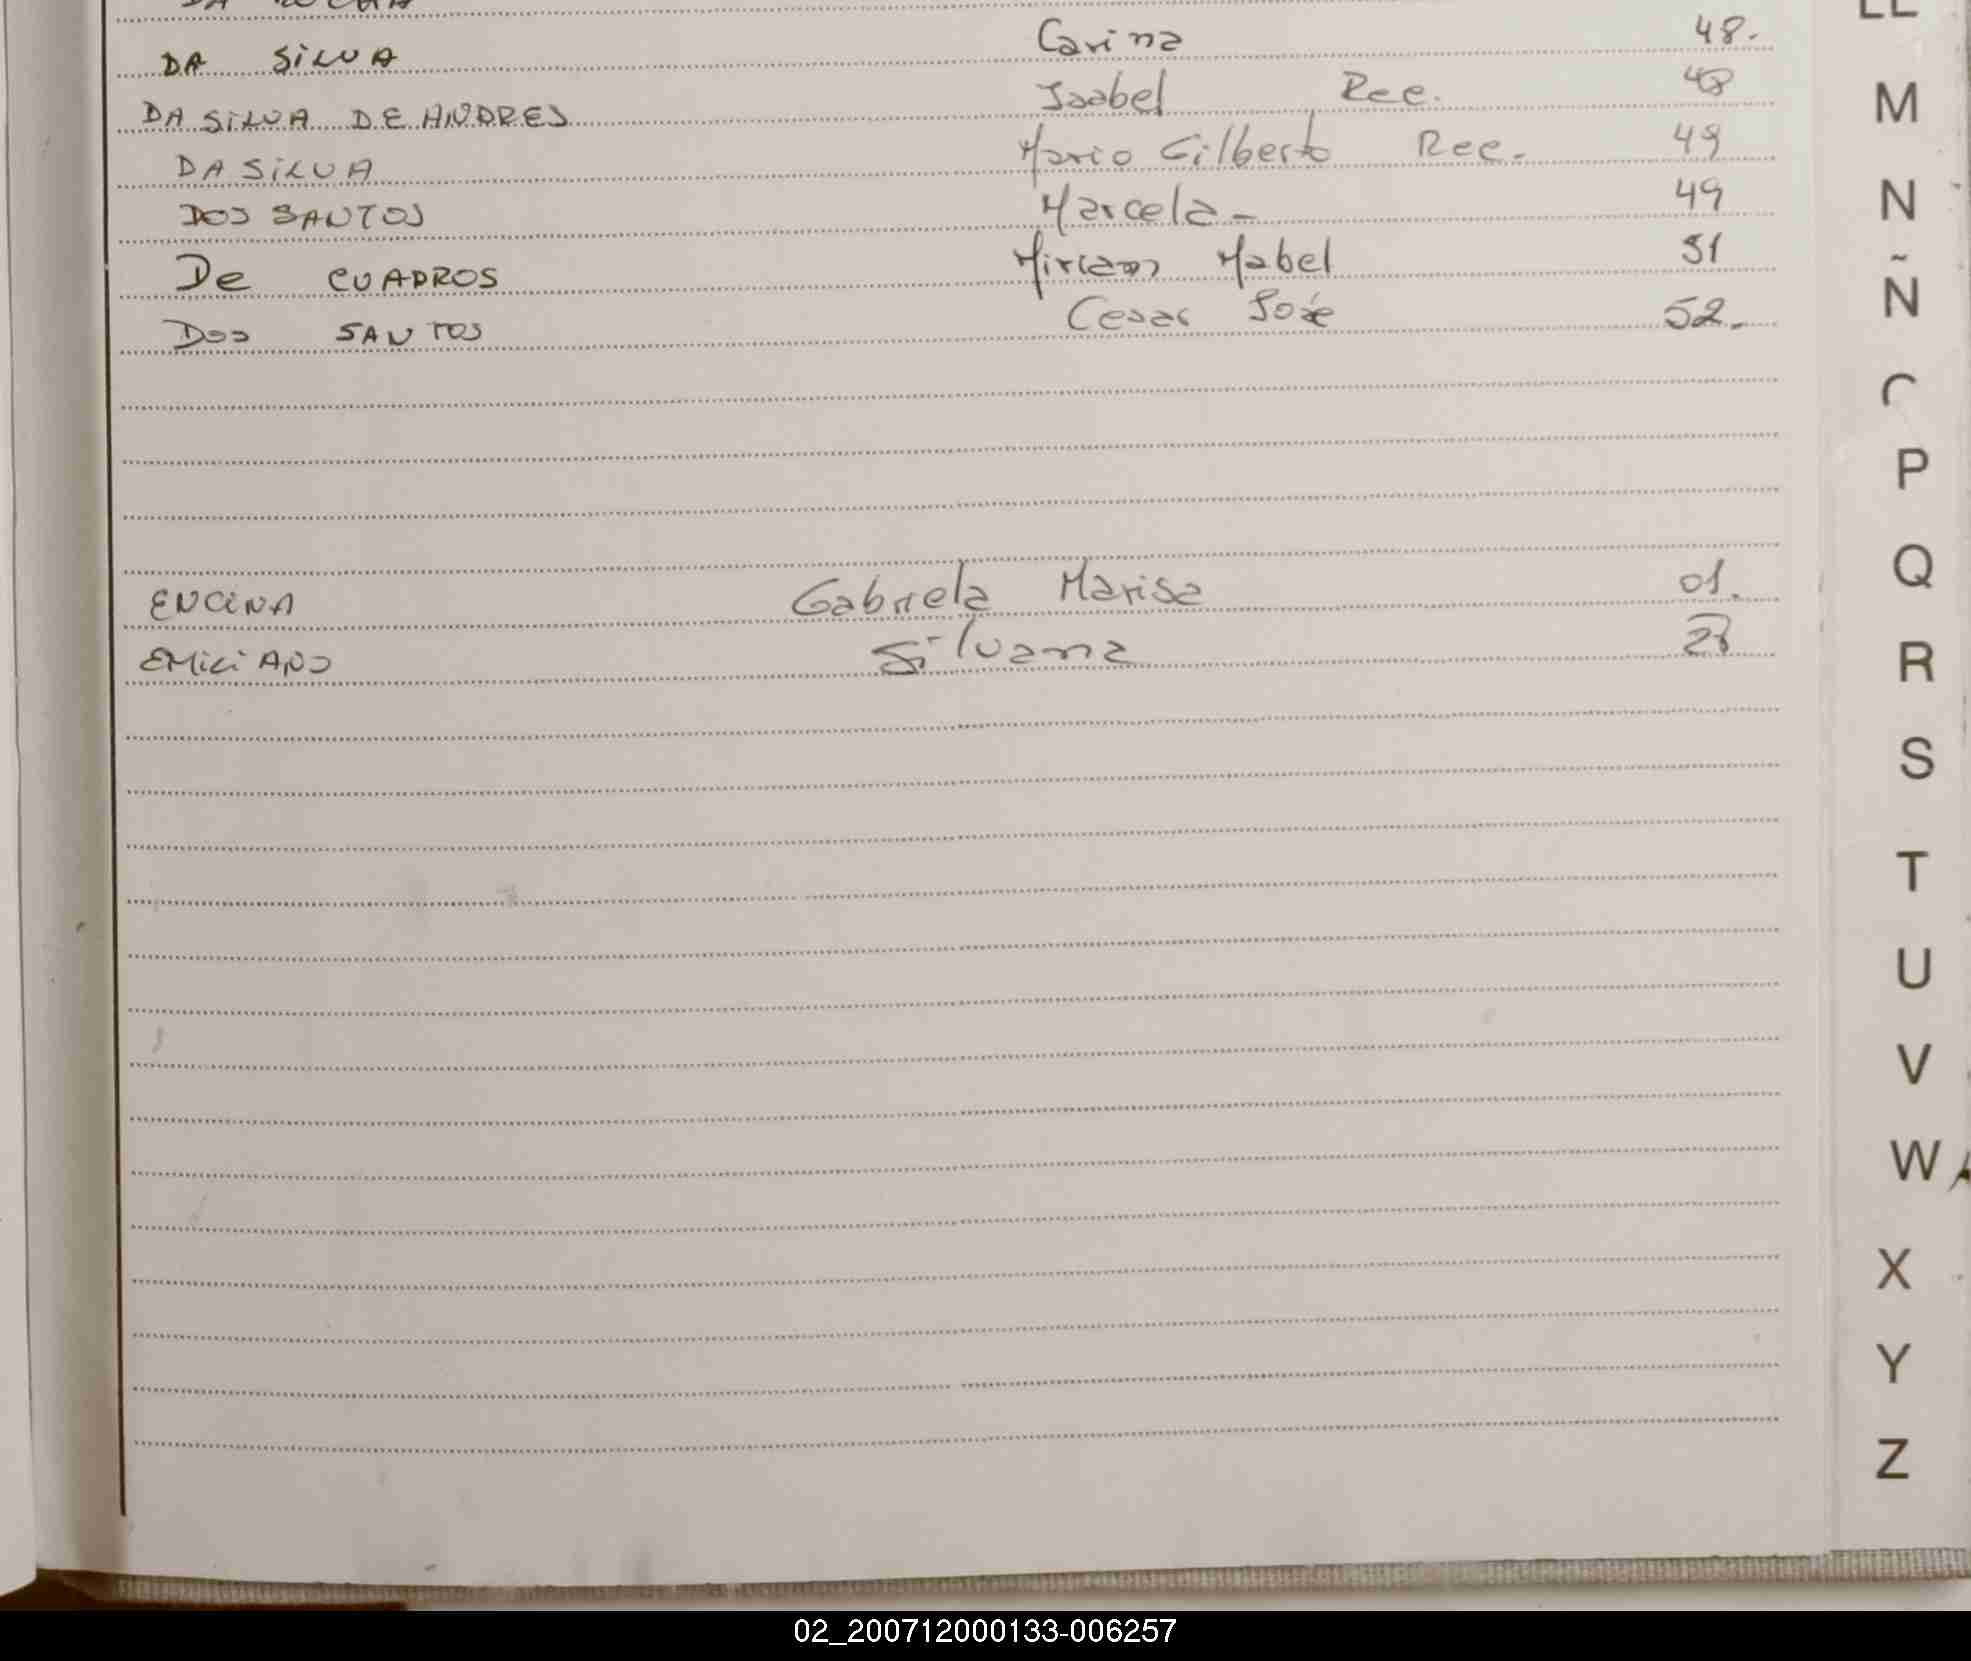 DA ROCHA
DA SILVA Carina 48.
DA SILVA DE ANDRES Isabel Rec. 48
DA SILVA Mario Gilberto Rec. 49
DOS SANTOS Marcela - 49
De CUADROS Miriam Mabel 51
Dos SANTOS Cesar José 52.
ENCINA Gabriela Marisa 01.
EMILIANO Silvana 28
LL
M
N
Ñ
P
Q
R
S
T
U
V
W
X
Y
Z
02_200712000133-006257